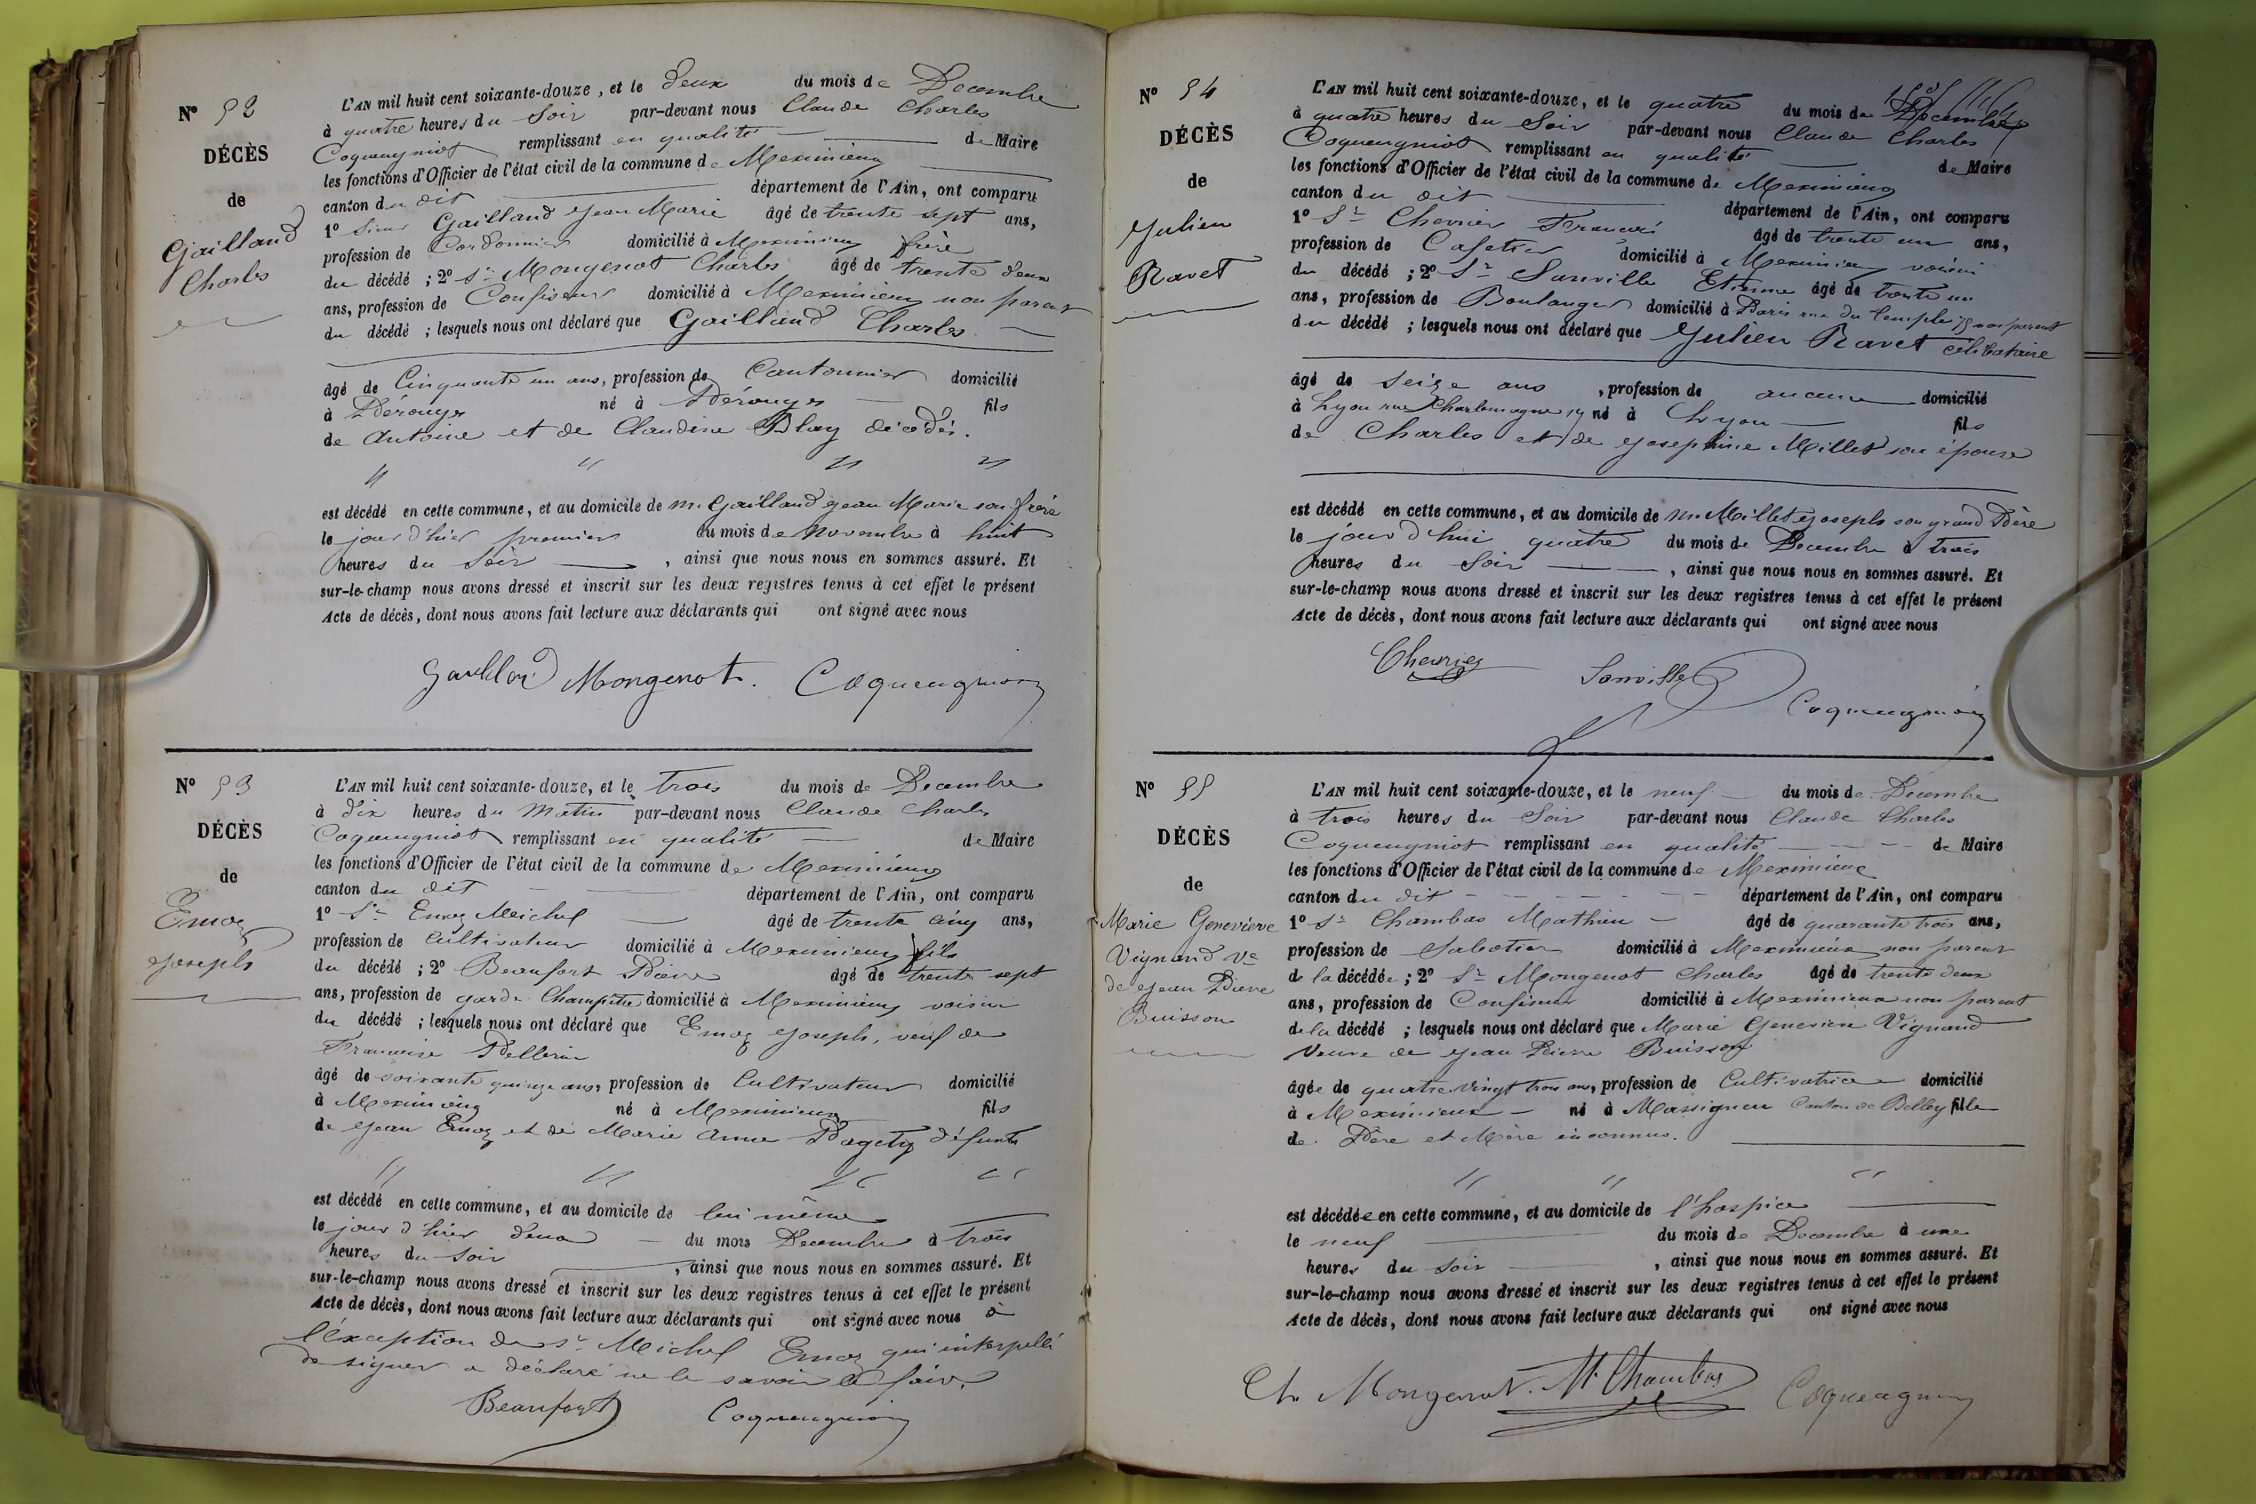 N° 52
DÉCÈS
de
Gailland
Charles
L'AN mil huit cent soixante-douze, et le Deux du mois de Decembre
à quatre heures du Soir par-devant nous Claude Charles
Coqueugniot remplissant en qualité de Maire
les fonctions d'Officier de l'état civil de la commune de Meximieux
canton du dit département de l'Ain, ont comparu
1° Sieur Gailland Jean Marie âgé de trente sept ans,
profession de Cordonnier domicilié à Meximieux frère
du décédé ; 2° Sr Mongenot Charles âgé de trente deux
ans, profession de Confiseur domicilié à Meximieux non parent
du décédé ; lesquels nous ont déclaré que Gailland Charles
âgé de Cinquante un ans, profession de Cantonnier domicilié
à Pérouges né à Pérouges fils
de Antoine et de Claudine Blay décédés.
est décédé en cette commune, et au domicile de M. Gailland Jean Marie son frère
le jour d'hier premier du mois de Novembre à huit
heures du Soir , ainsi que nous nous en sommes assuré. Et
sur-le-champ nous avons dressé et inscrit sur les deux registres tenus à cet effet le présent
Acte de décès, dont nous avons fait lecture aux déclarants qui ont signé avec nous
Gailland Mongenot. Coqueugniot
N° 53
DÉCÈS
de
Emoz
Joseph
L'AN mil huit cent soixante-douze, et le trois du mois de Decembre
à dix heures du Matin par-devant nous Claude Charles
Coqueugniot remplissant en qualité de Maire
les fonctions d'Officier de l'état civil de la commune de Meximieux
canton du dit département de l'Ain, ont comparu
1° Sr Emoz Michel âgé de trente cinq ans,
profession de Cultivateur domicilié à Meximieux fils
du décédé ; 2° Beaufort Pierre âgé de trente sept
ans, profession de garde Champêtre domicilié à Meximieux voisin
du décédé ; lesquels nous ont déclaré que Emoz Joseph, veuf de
Françoise Pellerin
âgé de soixante quinze ans, profession de Cultivateur domicilié
à Meximieux né à Meximieux fils
de Jean Emoz et de Marie Anne Pagety défunts
est décédé en cette commune, et au domicile de lui même
le jour d'hier deux du mois Decembre à trois
heures du Soir , ainsi que nous nous en sommes assuré. Et
sur-le-champ nous avons dressé et inscrit sur les deux registres tenus à cet effet le présent
Acte de décès, dont nous avons fait lecture aux déclarants qui ont signé avec nous à
l'exception de Sr Michel Emoz qui interpellé
de signer a déclaré ne le savoir faire.
Beaufort Coqueugniot
N° 54
DÉCÈS
de
Julien
Ravet
L'AN mil huit cent soixante-douze, et le quatre du mois de Decembre
à quatre heures du Soir par-devant nous Claude Charles
Coqueugniot remplissant en qualité de Maire
les fonctions d'Officier de l'état civil de la commune de Meximieux
canton du dit département de l'Ain, ont comparu
1° Sr Chevrier François âgé de trente un ans,
profession de Cafetier domicilié à Meximieux voisin
du décédé ; 2° Sr Sanville Etienne âgé de trente un
ans, profession de Boulanger domicilié à Paris rue du Temple 75 non parent
du décédé ; lesquels nous ont déclaré que Julien Ravet célibataire
âgé de seize ans , profession de aucune domicilié
à Lyon rue Charlemagne 17 né à Lyon fils
de Charles et de Josephine Millet son épouse
est décédé en cette commune, et au domicile de Mr Millet Joseph son grand Père
le jour d'hui quatre du mois de Decembre à trois
heures du Soir , ainsi que nous nous en sommes assuré. Et
sur-le-champ nous avons dressé et inscrit sur les deux registres tenus à cet effet le présent
Acte de décès, dont nous avons fait lecture aux déclarants qui ont signé avec nous
Chevrier Sanville Coqueugniot
N° 55
DÉCÈS
de
Marie Geneviève
Vignand Ve
de Jean Pierre
Buisson
L'AN mil huit cent soixante-douze, et le neuf du mois de Decembre
à trois heures du Soir par-devant nous Claude Charles
Coqueugniot remplissant en qualité de Maire
les fonctions d'Officier de l'état civil de la commune de Meximieux
canton du dit département de l'Ain, ont comparu
1° Sr Chambas Mathieu âgé de quarante trois ans,
profession de Sabotier domicilié à Meximieux non parent
de la décédée ; 2° Sr Mongenot Charles âgé de trente deux
ans, profession de Confiseur domicilié à Meximieux non parent
de la décédé ; lesquels nous ont déclaré que Marie Genevieve Vignand
Veuve de Jean Pierre Buisson
âgée de quatre vingt trois ans, profession de Cultivatrice domicilié
à Meximieux né à Massignieu Canton de Belley fille
de Père et Mère inconnus.
est décédée en cette commune, et au domicile de l'hospice
le neuf du mois de Decembre à une
heures du Soir , ainsi que nous nous en sommes assuré. Et
sur-le-champ nous avons dressé et inscrit sur les deux registres tenus à cet effet le présent
Acte de décès, dont nous avons fait lecture aux déclarants qui ont signé avec nous
Ch Mongenot. M. Chambas Coqueugniot